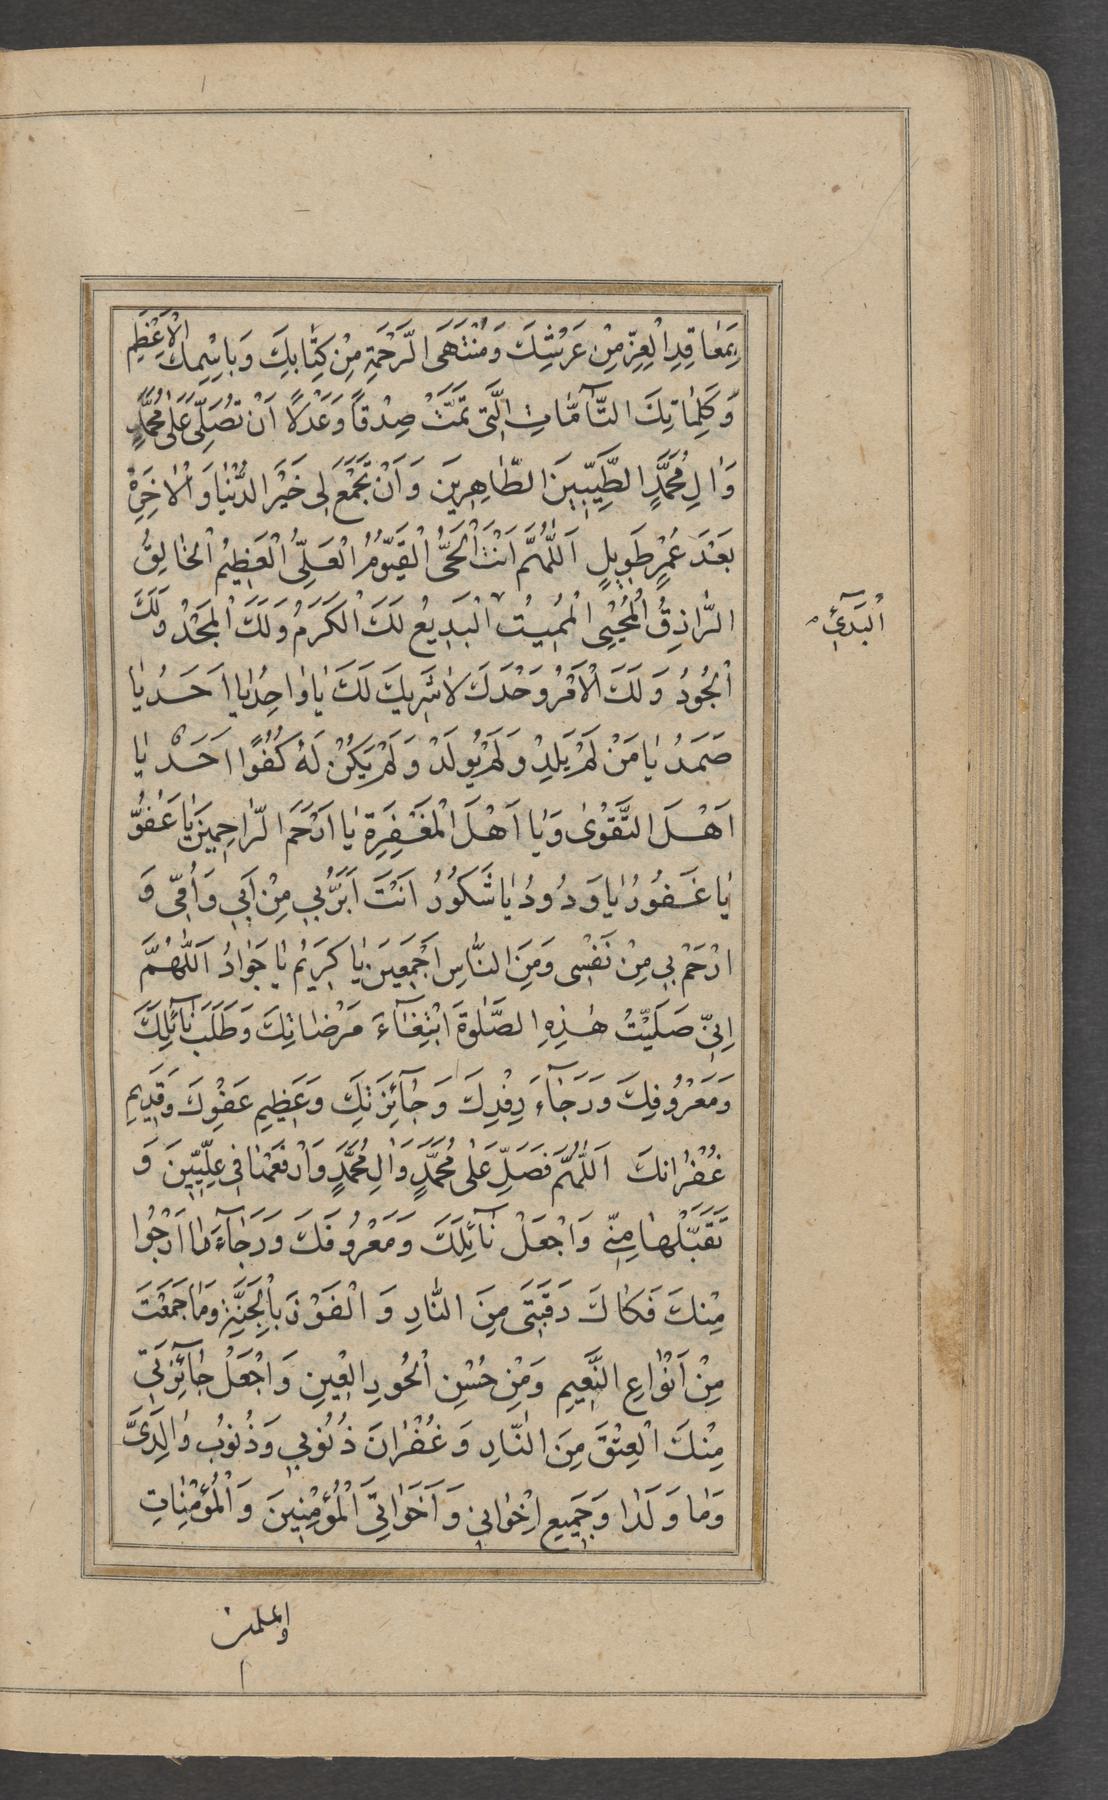 بِمَعٰاقِدِ الْعِزِّ مِنْ عَرْشِكَ وَمُنْتَهَى الرَّحْمَةِ مِنْ كِتٰابِكَ وَبِاسْمِكَ الْاَعْظَمِ
وَكَلِمٰاتِكَ التَّآمّٰاتِ الَّتِى تَمَّتْ صِدْقاً وَعَدْلًا اَنْ تُصَلِّىَ عَلٰى مُحَمَّدٍ
وَاٰلِ مُحَمَّدٍ الطَّيِّبِينَ الطّٰاهِرِينَ وَاَنْ تَجْمَعَ لِى خَيْرَ الدُّنْيٰا وَالْاٰخِرَةِ
بَعْدَ عُمْرٍ طَوِيلٍ اَللّٰهُمَّ اَنْتَ الْحَىُّ الْقَيُّومُ الْعَلِىُّ الْعَظِيمُ الْخٰالِقُ
الرّٰازِقُ الْمُحْيِى الْمُمِيتُ الْبَدِيعُ لَكَ الْكَرَمُ وَلَكَ الْمَجْدُ وَلَكَ
الْبَدَىِٓٔ
الْجُودُ وَلَكَ الْاَمْرُ وَحْدَكَ لاٰ شَرِيكَ لَكَ يٰا وٰاحِدُ يٰا اَحَدُ يٰا
صَمَدُ يٰا مَنْ لَمْ يَلِدْ وَلَمْ يُولَدْ وَلَمْ يَكُنْ لَهُ كُفُوًا اَحَدٌ يٰا
اَهْلَ التَّقْوٰى وَيٰا اَهْلَ الْمَغْفِرَةِ يٰا اَرْحَمَ الرّٰاحِمِينَ يٰا عَفُوُّ
يٰا غَفُورُ يٰا وَدُودُ يٰا شَكُورُ اَنْتَ اَبَرُّ بِي مِنْ اَبِي وَاُمِّى وَ
اَرْحَمُ بِي مِنْ نَفْسِى وَمِنَ النّٰاسِ اَجْمَعِينَ يٰا كَرِيمُ يٰا جَوٰادُ اَللّٰهُمَّ
اِنِّى صَلَّيْتُ هٰذِهِ الصَّلٰوةَ ابْتِغٰآءَ مَرْضٰاتِكَ وَطَلَبَ نٰآئِلِكَ
وَمَعْرُوفِكَ وَرَجٰآءَ رِفْدِكَ وَجٰآئِزَتِكَ وَعَظِيمِ عَفْوِكَ وَقَدِيمِ
غُفْرٰانِكَ اَللّٰهُمَّ فَصَلِّ عَلٰى مُحَمَّدٍ وَاٰلِ مُحَمَّدٍ وَارْفَعْهٰا فِى عِلِّيِّينَ وَ
تَقَبَّلْهٰا مِنِّى وَاجْعَلْ نٰآئِلَكَ وَمَعْرُوفَكَ وَرَجٰآءَ مٰا اَرْجُوا
مِنْكَ فَكٰاكَ رَقَبَتِى مِنَ النّٰارِ وَالْفَوْزَ بِالْجَنَّةِ وَمٰا جَمَعْتَ
مِنْ اَنْوٰاعِ النَّعِيمِ وَمِنْ حُسْنِ الْحُورِ الْعِينِ وَاجْعَلْ جٰآئِزَتِي
مِنْكَ الْعِتْقَ مِنَ النّٰارِ وَغُفْرٰانَ ذُنُوبِي وَذُنُوبَ وٰالِدَىَّ
وَمٰا وَلَدٰا وَجَمِيعِ اِخْوٰانِي وَاَخَوٰاتِى الْمُؤْمِنِينَ وَالْمُؤْمِنٰاتِ
والمسلمين